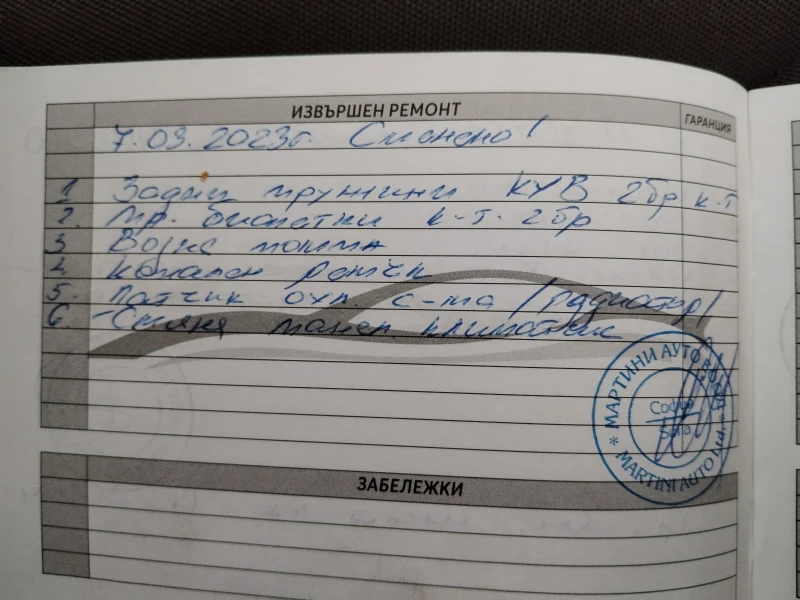 ИЗВЪРШЕН РЕМОНТ
ГАРАНЦИЯ
7.03.2023г. Сменено!
1 Задни пружини КYB 2бр к-т
2. Пр. биалетки к-т. 2бр
3 Водна помпа
4. Канален ремък
5. Датчик охл. с-ма /радиатор/
6 Смяна климатик
МАРТИНИ АУТО ЕООД
София
Sofia
* MARTINI AUTO Ltd. *
ЗАБЕЛЕЖКИ